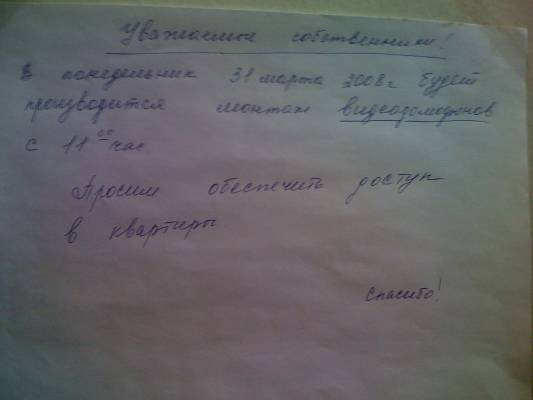 Уважаемые собственники!
В понедельник 31 марта 2008г будет
производится монтаж видеодомофонов
с 11 00 час.
Просим обеспечить доступ
в квартиры.
спасибо!